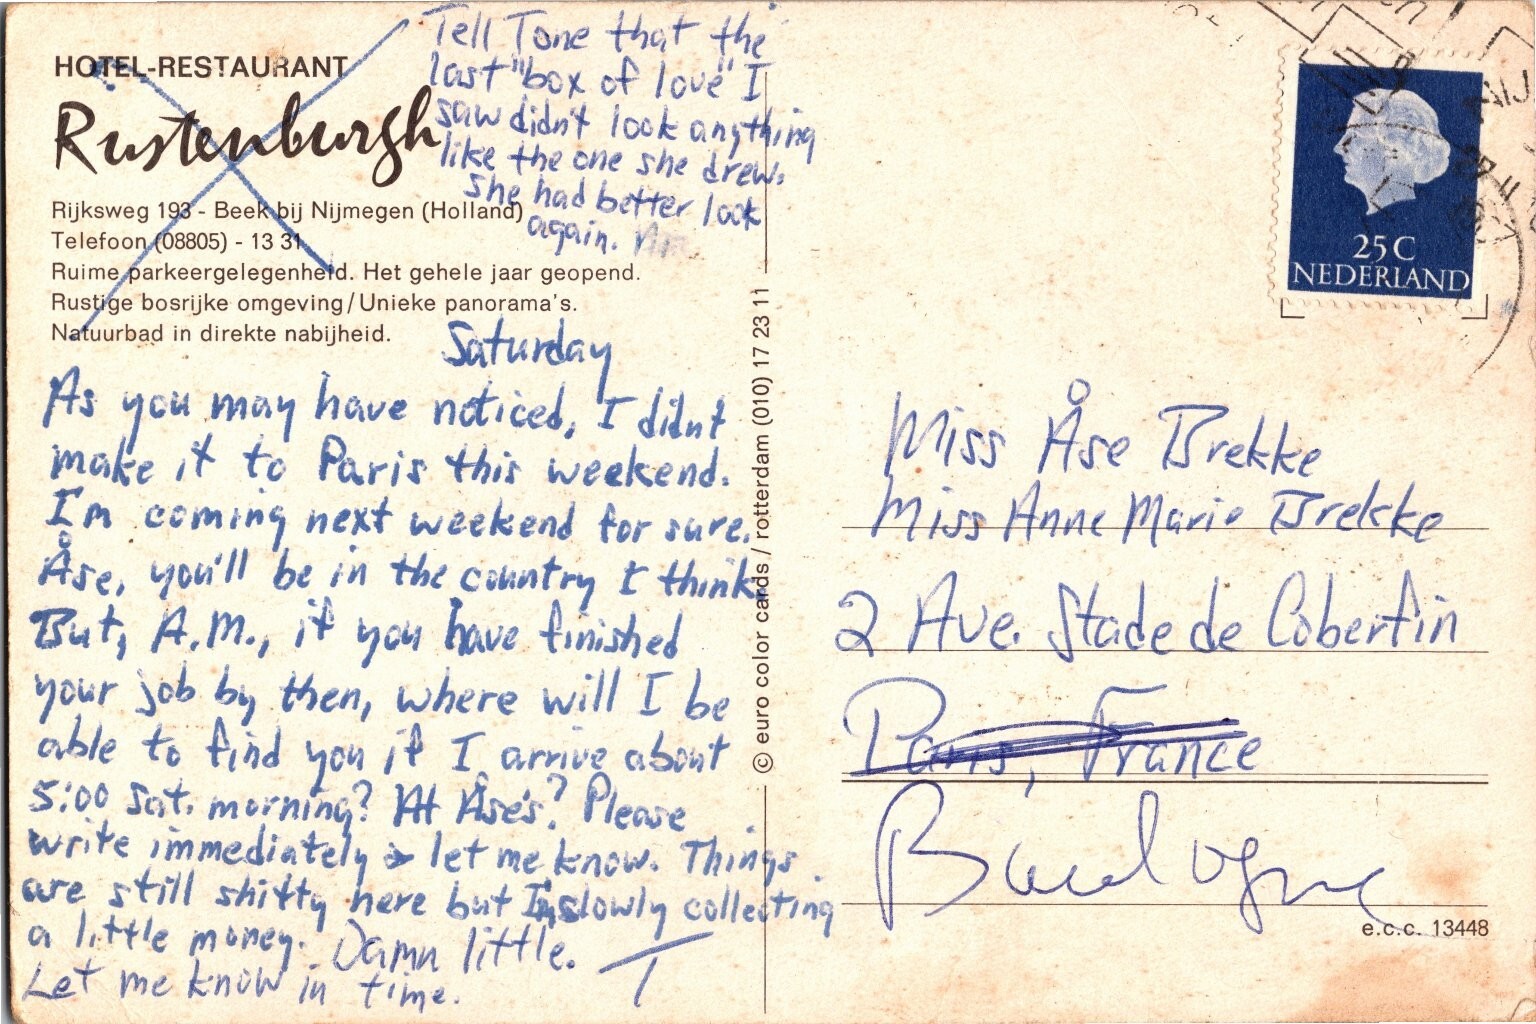 HOTEL-RESTAURANT
Rustenburgh
Rijksweg 193 - Beek bij Nijmegen (Holland)
Telefoon (08805) - 13 31
Ruime parkeergelegenheid. Het gehele jaar geopend.
Rustige bosrijke omgeving/Unieke panorama's.
Natuurbad in direkte nabijheid.
Tell Tone that the
last "box of love" I
saw didn't look anything
like the one she drew.
She had better look
again.
Saturday
As you may have noticed, I didnt
make it to Paris this weekend.
I'm coming next weekend for sure.
Åse, you'll be in the country I think.
But, A.M., if you have finished
your job by then, where will I be
able to find you if I arrive about
5:00 Sat. morning? At Åse's? Please
write immediately & let me know. Things
are still shitty here but I'm slowly collecting
a little money. Damn little.
Let me know in time.
T
© euro color cards / rotterdam (010) 17 23 11
25 C
NEDERLAND
Miss Åse Brekke
Miss Anne Marie Brekke
2 Ave. Stade de Cobertin
Paris, France
e.c.c. 13448